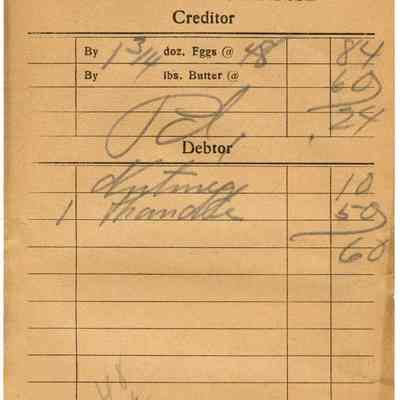 Creditor
By 1 3/4 doz. Eggs @ 48 84
By lbs. Butter @ 60
Pd, 24
Debtor
Nutmeg 10
1 Handle 50
60
48